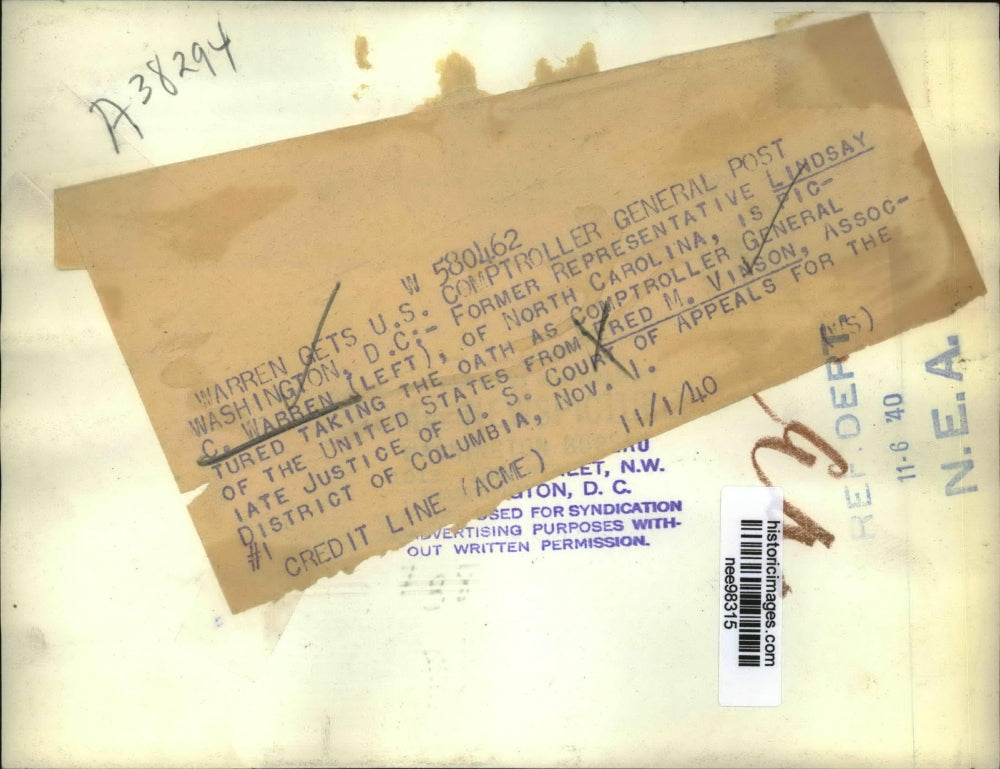 A38294
W 580462
WARREN GETS U.S. COMPTROLLER GENERAL POST
WASHINGTON, D.C.- FORMER REPRESENTATIVE LINDSAY
C. WARREN (LEFT), OF NORTH CAROLINA, IS PIC-
TURED TAKING THE OATH AS COMPTROLLER GENERAL
OF THE UNITED STATES FROM FRED M. VINSON, ASSOC-
IATE JUSTICE OF U. S. COURT OF APPEALS FOR THE
DISTRICT OF COLUMBIA, NOV. 1.
#1
CREDIT LINE (ACME) 11/1/40 (S)
N.W.
D. C.
FOR SYNDICATION
PURPOSES WITH-
OUT WRITTEN PERMISSION.
REF. DEPT.
11-6 '40
N.E.A.
historicimages.com
nee98315